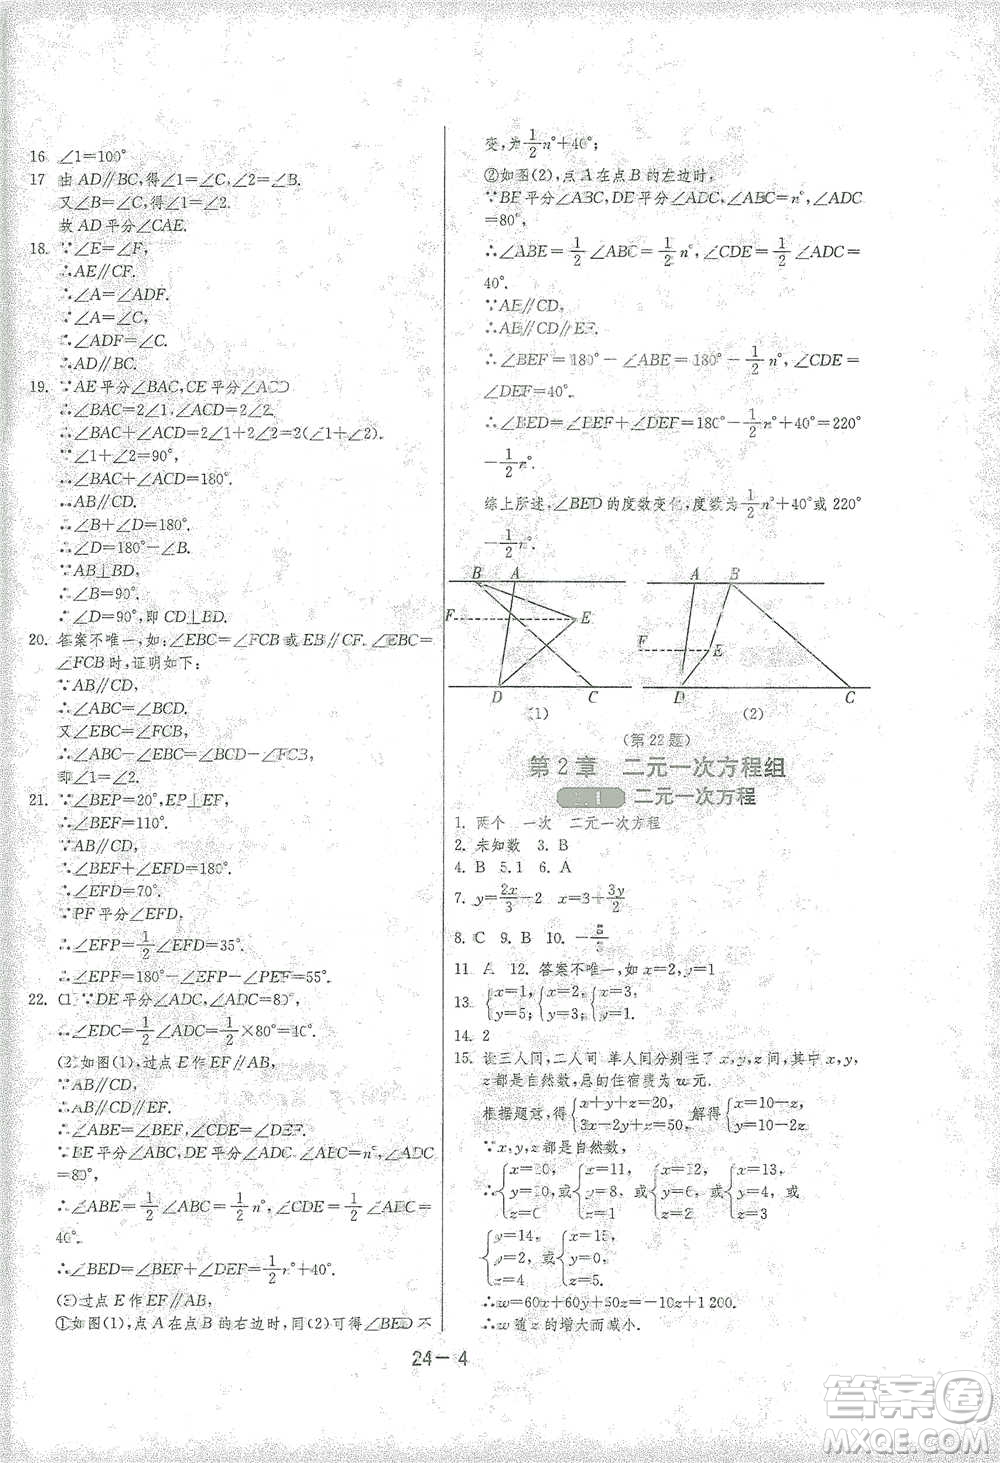 16. ∠1=100°
17. 由 AD∥BC,得∠1=∠C,∠2=∠B.
又∠B=∠C,得∠1=∠2.
故 AD 平分∠CAE.
18. ∵∠E=∠F,
∴AE∥CF.
∴∠A=∠ADF.
∵∠A=∠C,
∴∠ADF=∠C.
∴AD∥BC.
19. ∵AE 平分∠BAC,CE 平分∠ACD
∴∠BAC=2∠1,∠ACD=2∠2.
∴∠BAC+∠ACD=2∠1+2∠2=2(∠1+∠2).
∵∠1+∠2=90°,
∴∠BAC+∠ACD=180°.
∴AB∥CD.
∴∠B+∠D=180°.
∴∠D=180°-∠B.
∵AB⊥BD,
∴∠B=90°.
∴∠D=90°,即 CD⊥BD.
20. 答案不唯一,如:∠EBC=∠FCB 或 EB∥CF. ∠EBC=
∠FCB 时,证明如下:
∵AB∥CD,
∴∠ABC=∠BCD.
又∠EBC=∠FCB,
∴∠ABC-∠EBC=∠BCD-∠FCB,
即∠1=∠2.
21. ∵∠BEP=20°,EP⊥EF,
∴∠BEF=110°.
∵AB∥CD,
∴∠BEF+∠EFD=180°.
∴∠EFD=70°.
∵PF 平分∠EFD,
∴∠EFP=1/2∠EFD=35°.
∴∠EPF=180°-∠EFP-∠PEF=55°.
22. (1)∵DE 平分∠ADC,∠ADC=80°,
∴∠EDC=1/2∠ADC=1/2×80°=40°.
(2)如图(1),过点 E 作 EF∥AB,
∵AB∥CD,
∴AB∥CD∥EF.
∴∠ABE=∠BEF,∠CDE=∠DEF.
∵BE 平分∠ABC,DE 平分∠ADC,∠ABC=n°,∠ADC
=80°,
∴∠ABE=1/2∠ABC=1/2n°,∠CDE=1/2∠ADC=
40°.
∴∠BED=∠BEF+∠DEF=1/2n°+40°.
(3)过点 E 作 EF∥AB,
①如图(1),点 A 在点 B 的右边时,同(2)可得∠BED 不
变,为1/2n°+40°;
②如图(2),点 A 在点 B 的左边时,
∵BE 平分∠ABC,DE 平分∠ADC,∠ABC=n°,∠ADC
=80°,
∴∠ABE=1/2∠ABC=1/2n°,∠CDE=1/2∠ADC=
40°.
∵AB∥CD,
∴AB∥CD∥EF.
∴∠BEF=180°-∠ABE=180°-1/2n°,∠CDE=
∠DEF=40°.
∴∠BED=∠BEF+∠DEF=180°-1/2n°+40°=220°
-1/2n°.
综上所述,∠BED 的度数变化,度数为1/2n°+40°或 220°
-1/2n°.
B A
F E
D C
(1)
A B
F E
D C
(2)
(第 22 题)
第 2 章 二元一次方程组
2.1 二元一次方程
1. 两个 一次 二元一次方程
2. 未知数 3. B
4. B 5. 1 6. A
7. y=2x/3-2 x=3+3y/2
8. C 9. B 10.
11. A 12. 答案不唯一,如 x=2,y=1
13. {x=1, y=5; {x=2, y=3; {x=3, y=1.
14. 2
15. 设三人间,二人间,单人间分别住了 x,y,z 间,其中 x,y,
z 都是自然数,总的住宿费为 w 元.
根据题意,得{x+y+z=20, 3x+2y+z=50, 解得{x=10-z, y=10-z.
∵x,y,z 都是自然数,
∴{x=10, y=10, z=0 或{x=11, y=8, z=1 或{x=12, y=6, z=2 或{x=13, y=4, z=3 或
{x=14, y=2, z=4 或{x=15, y=0, z=5.
∴w=60x+60y+50z=-10z+1 200.
∴w 随 z 的增大而减小.
24-4
答案圈
MXQE.COM